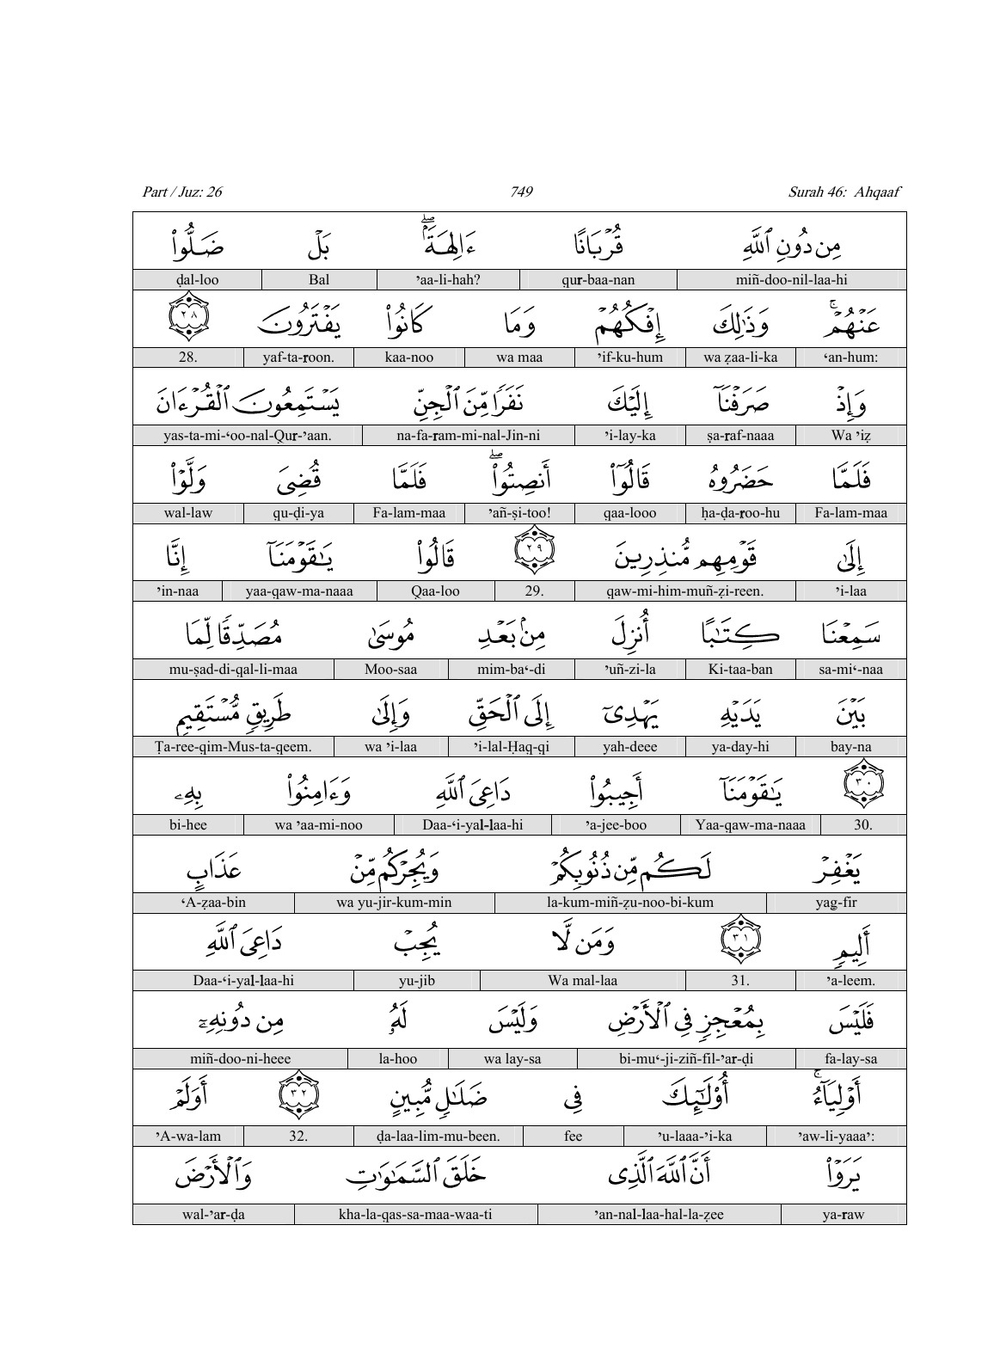 Part / Juz: 26 749 Surah 46: Ahqaaf
مِن دُونِ ٱللَّهِ قُرْبَانًا ءَالِهَةَۢ ۖ بَلْ ضَلُّوا۟
ḍal-loo Bal ’aa-li-hah? qur-baa-nan miñ-doo-nil-laa-hi
عَنْهُمْ ۚ وَذَٰلِكَ إِفْكُهُمْ وَمَا كَانُوا۟ يَفْتَرُونَ ٢٨
28. yaf-ta-roon. kaa-noo wa maa ’if-ku-hum wa ẓaa-li-ka ‘an-hum:
وَإِذْ صَرَفْنَآ إِلَيْكَ نَفَرًا مِّنَ ٱلْجِنِّ يَسْتَمِعُونَ ٱلْقُرْءَانَ
yas-ta-mi-‘oo-nal-Qur-’aan. na-fa-ram-mi-nal-Jin-ni ’i-lay-ka ṣa-raf-naaa Wa ’iẓ
فَلَمَّا حَضَرُوهُ قَالُوٓا۟ أَنصِتُوا۟ ۖ فَلَمَّا قُضِىَ وَلَّوْا۟
wal-law qu-ḍi-ya Fa-lam-maa ’añ-ṣi-too! qaa-looo ḥa-ḍa-roo-hu Fa-lam-maa
إِلَىٰ قَوْمِهِم مُّنذِرِينَ ٢٩ قَالُوا۟ يَـٰقَوْمَنَآ إِنَّا
’in-naa yaa-qaw-ma-naaa Qaa-loo 29. qaw-mi-him-muñ-ẓi-reen. ’i-laa
سَمِعْنَا كِتَـٰبًا أُنزِلَ مِنۢ بَعْدِ مُوسَىٰ مُصَدِّقًا لِّمَا
mu-ṣad-di-qal-li-maa Moo-saa mim-ba‘-di ’uñ-zi-la Ki-taa-ban sa-mi‘-naa
بَيْنَ يَدَيْهِ يَهْدِىٓ إِلَى ٱلْحَقِّ وَإِلَىٰ طَرِيقٍ مُّسْتَقِيمٍ
Ṭa-ree-qim-Mus-ta-qeem. wa ’i-laa ’i-lal-Ḥaq-qi yah-deee ya-day-hi bay-na
٣٠ يَـٰقَوْمَنَآ أَجِيبُوا۟ دَاعِىَ ٱللَّهِ وَءَامِنُوا۟ بِهِۦ
bi-hee wa ’aa-mi-noo Daa-‘i-yal-laa-hi ’a-jee-boo Yaa-qaw-ma-naaa 30.
يَغْفِرْ لَكُم مِّن ذُنُوبِكُمْ وَيُجِرْكُم مِّنْ عَذَابٍ
‘A-ẓaa-bin wa yu-jir-kum-min la-kum-miñ-ẓu-noo-bi-kum yag-fir
أَلِيمٍ ٣١ وَمَن لَّا يُجِبْ دَاعِىَ ٱللَّهِ
Daa-‘i-yal-laa-hi yu-jib Wa mal-laa 31. ’a-leem.
فَلَيْسَ بِمُعْجِزٍ فِى ٱلْأَرْضِ وَلَيْسَ لَهُۥ مِن دُونِهِۦٓ
miñ-doo-ni-heee la-hoo wa lay-sa bi-mu‘-ji-ziñ-fil-’ar-ḍi fa-lay-sa
أَوْلِيَآءُ ۚ أُو۟لَـٰٓئِكَ فِى ضَلَـٰلٍ مُّبِينٍ ٣٢ أَوَلَمْ
’A-wa-lam 32. ḍa-laa-lim-mu-been. fee ’u-laaa-’i-ka ’aw-li-yaaa’:
يَرَوْا۟ أَنَّ ٱللَّهَ ٱلَّذِى خَلَقَ ٱلسَّمَـٰوَٰتِ وَٱلْأَرْضَ
wal-’ar-ḍa kha-la-qas-sa-maa-waa-ti ’an-nal-laa-hal-la-ẓee ya-raw